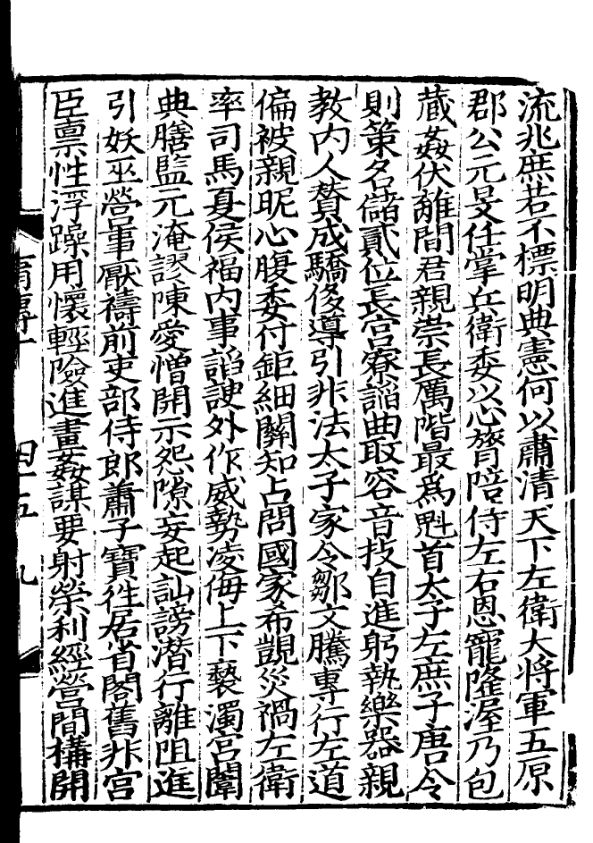 流兆庶若不標明典憲何以肅清天下左衛大將軍五原
郡公元旻任掌兵衛委以心膂陪侍左右恩寵隆渥乃包
藏姦伏離間君親崇長厲階最爲魁首太子左庶子唐令
則策名儲貳位長宮寮諂曲取容音技自進躬執樂器親
教内人贊成驕侈導引非法太子家令鄒文騰專行左道
偏被親昵心腹委付鉅細關知占問國家希覬災禍左衛
率司馬夏侯福内事諂諛外作威勢凌侮上下褻濁宮闈
典膳監元淹謬陳愛憎開示怨隙妄起訕謗潜行離阻進
引妖巫營事厭禱前吏部侍郎蕭子寶徃居省閣舊非宮
臣禀性浮躁用懷輕險進畫姦謀要射榮利經營間構開
四十五 九